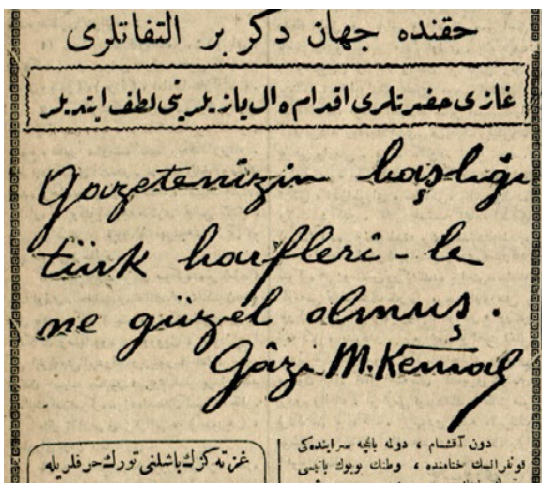 حقنده جهان دكر بر التفاتلرى
غازى حضرتلرى اقدام ه ال يازيلرينى لطف ايتديلر
Gazetenizin başlığı
türk harfleri-le
ne güzel olmuş.
Gâzi M. Kemal
غزته كزك باشلغى تورك حرفلريله
دون آقشام ، دولمه باغچه سراينده كى
قونفرانسك ختامنده ، وطنك بويوك بانيسى